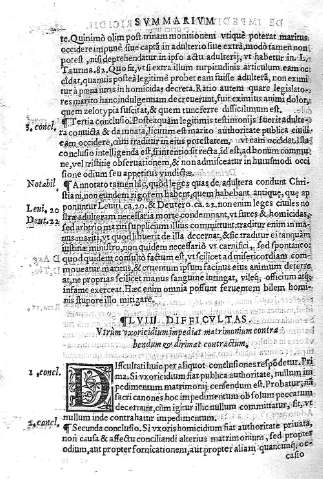 SVMMARIVM
te. Quinimò olim post trinam monitionem vtiq́; poterat maritus
occidere impunè siue capta in adulterio siue extra, modò tamen non
post, nisi deprehendatur in ipso actu adulterij, vt habetur in
Taurina. 82. Quo sit vt extra illum turpitudinis articulum eam oc-
cidat, quamuis postea legitimè probet eam fuisse adulterâ, non eximi
tur à pœna iuris in homicidas decreta. Ratio autem quare legislato-
res marito hanc indulgentiam decreuerint, fuit eximius animi dolor,
quem zelotypia suscitat, & quem tunc ferre difficilimum est.
3. concl.
¶ Tertia conclusio. Postquam legitimis testimonijs fuerit adulte-
ra conuicta & damnata, licitum est marito authoritate publica
eam occidere, cùm traditur in eius potestatem,
conclusio intelligenda est, si intentio sit recta, id est, ad bonum commu-
ne, vel restitutæ obseruationem, & non admisceatur in huiusmodi occi
sione odium seu appetitus vindictæ.
Notabil.
Leui. 20
Deut. 22.
¶ Annotato tamen hîc, quòd leges quas de adultera condunt Chri-
stiani, non eundem rigorem habent, quem habebant antiquæ, quæ ap-
ponuntur Leuit. ca. 20. & Deutero. ca. 22. non enim leges ciuiles no
stræ adulteram necessaria morte condemnant, vt fures & homicidas,
sed arbitrio mariti supplicium illius committitur: traditur enim in ma-
nus mariti, vt quod libuerit de illa decernat, & sic traditur ei tanquam
iustitiæ ministro, non quidem necessariò vt carnifici, sed spontaneo:
quod quidem consultò factum est, vt scilicet ad misericordiam com-
moueatur maritus, & cruentum ipsum facinus eius animum deterre
at, ne proprias scilicet manus sanguine intingat, vileq́; officium ac
infame exerceat. Hæc enim omnia possunt feruentem bilem homi-
nis stupore illo mitigare.
¶ LVIII. DIFFICVLTAS.
Vtrùm vxoricidium impediat matrimonium contra
hendum & dirimat contractum.
1. concl.
DIfficultati huic per aliquot conclusiones respōdetur. Pri
ma. Si vxoricidium fiat publica authoritate, nullum im
pedimentum matrimonij censendum est. Probatur, nā
sacri canones hoc impedimentum ob solum peccatum
decernunt, cùm igitur illic nullum committatur, fit, vt
nullum inde contrahatur impedimentum.
2. concl.
¶ Secunda conclusio. Si vxoris homicidium fiat authoritate priuata,
non causa & affectu conciliandi alterius matrimonium, sed propter
odium, aut propter fornicationem, aut propter aliam quamcunq́; oc-
casio